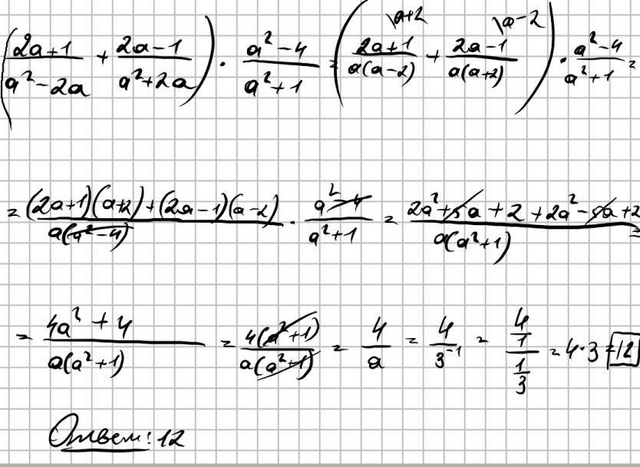 (2a+1/a²-2a + 2a-1/a²+2a) · a²-4/a²+1 = (2a+1/a(a-2) \a+2 + 2a-1/a(a+2) \a-2) · a²-4/a²+1 =
= (2a+1)(a+2)+(2a-1)(a-2)/a(a²-4) · a²-4/a²+1 = 2a²+5a+2+2a²-5a+2/a(a²+1) =
= 4a²+4/a(a²+1) = 4(a²+1)/a(a²+1) = 4/a = 4/3⁻¹ = 4/1/1/3 = 4·3=12
Ответ: 12